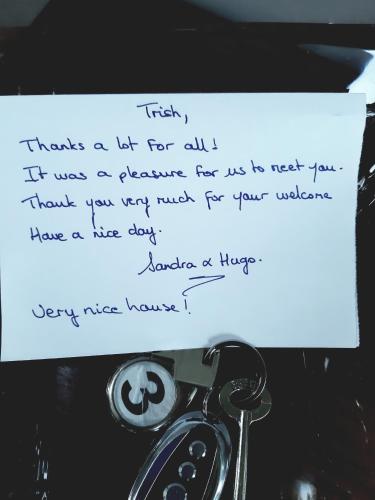 Trish,
Thanks a lot for all!
It was a pleasure for us to meet you.
Thank you very much for your welcome
Have a nice day.
Sandra & Hugo.
Very nice house!
3